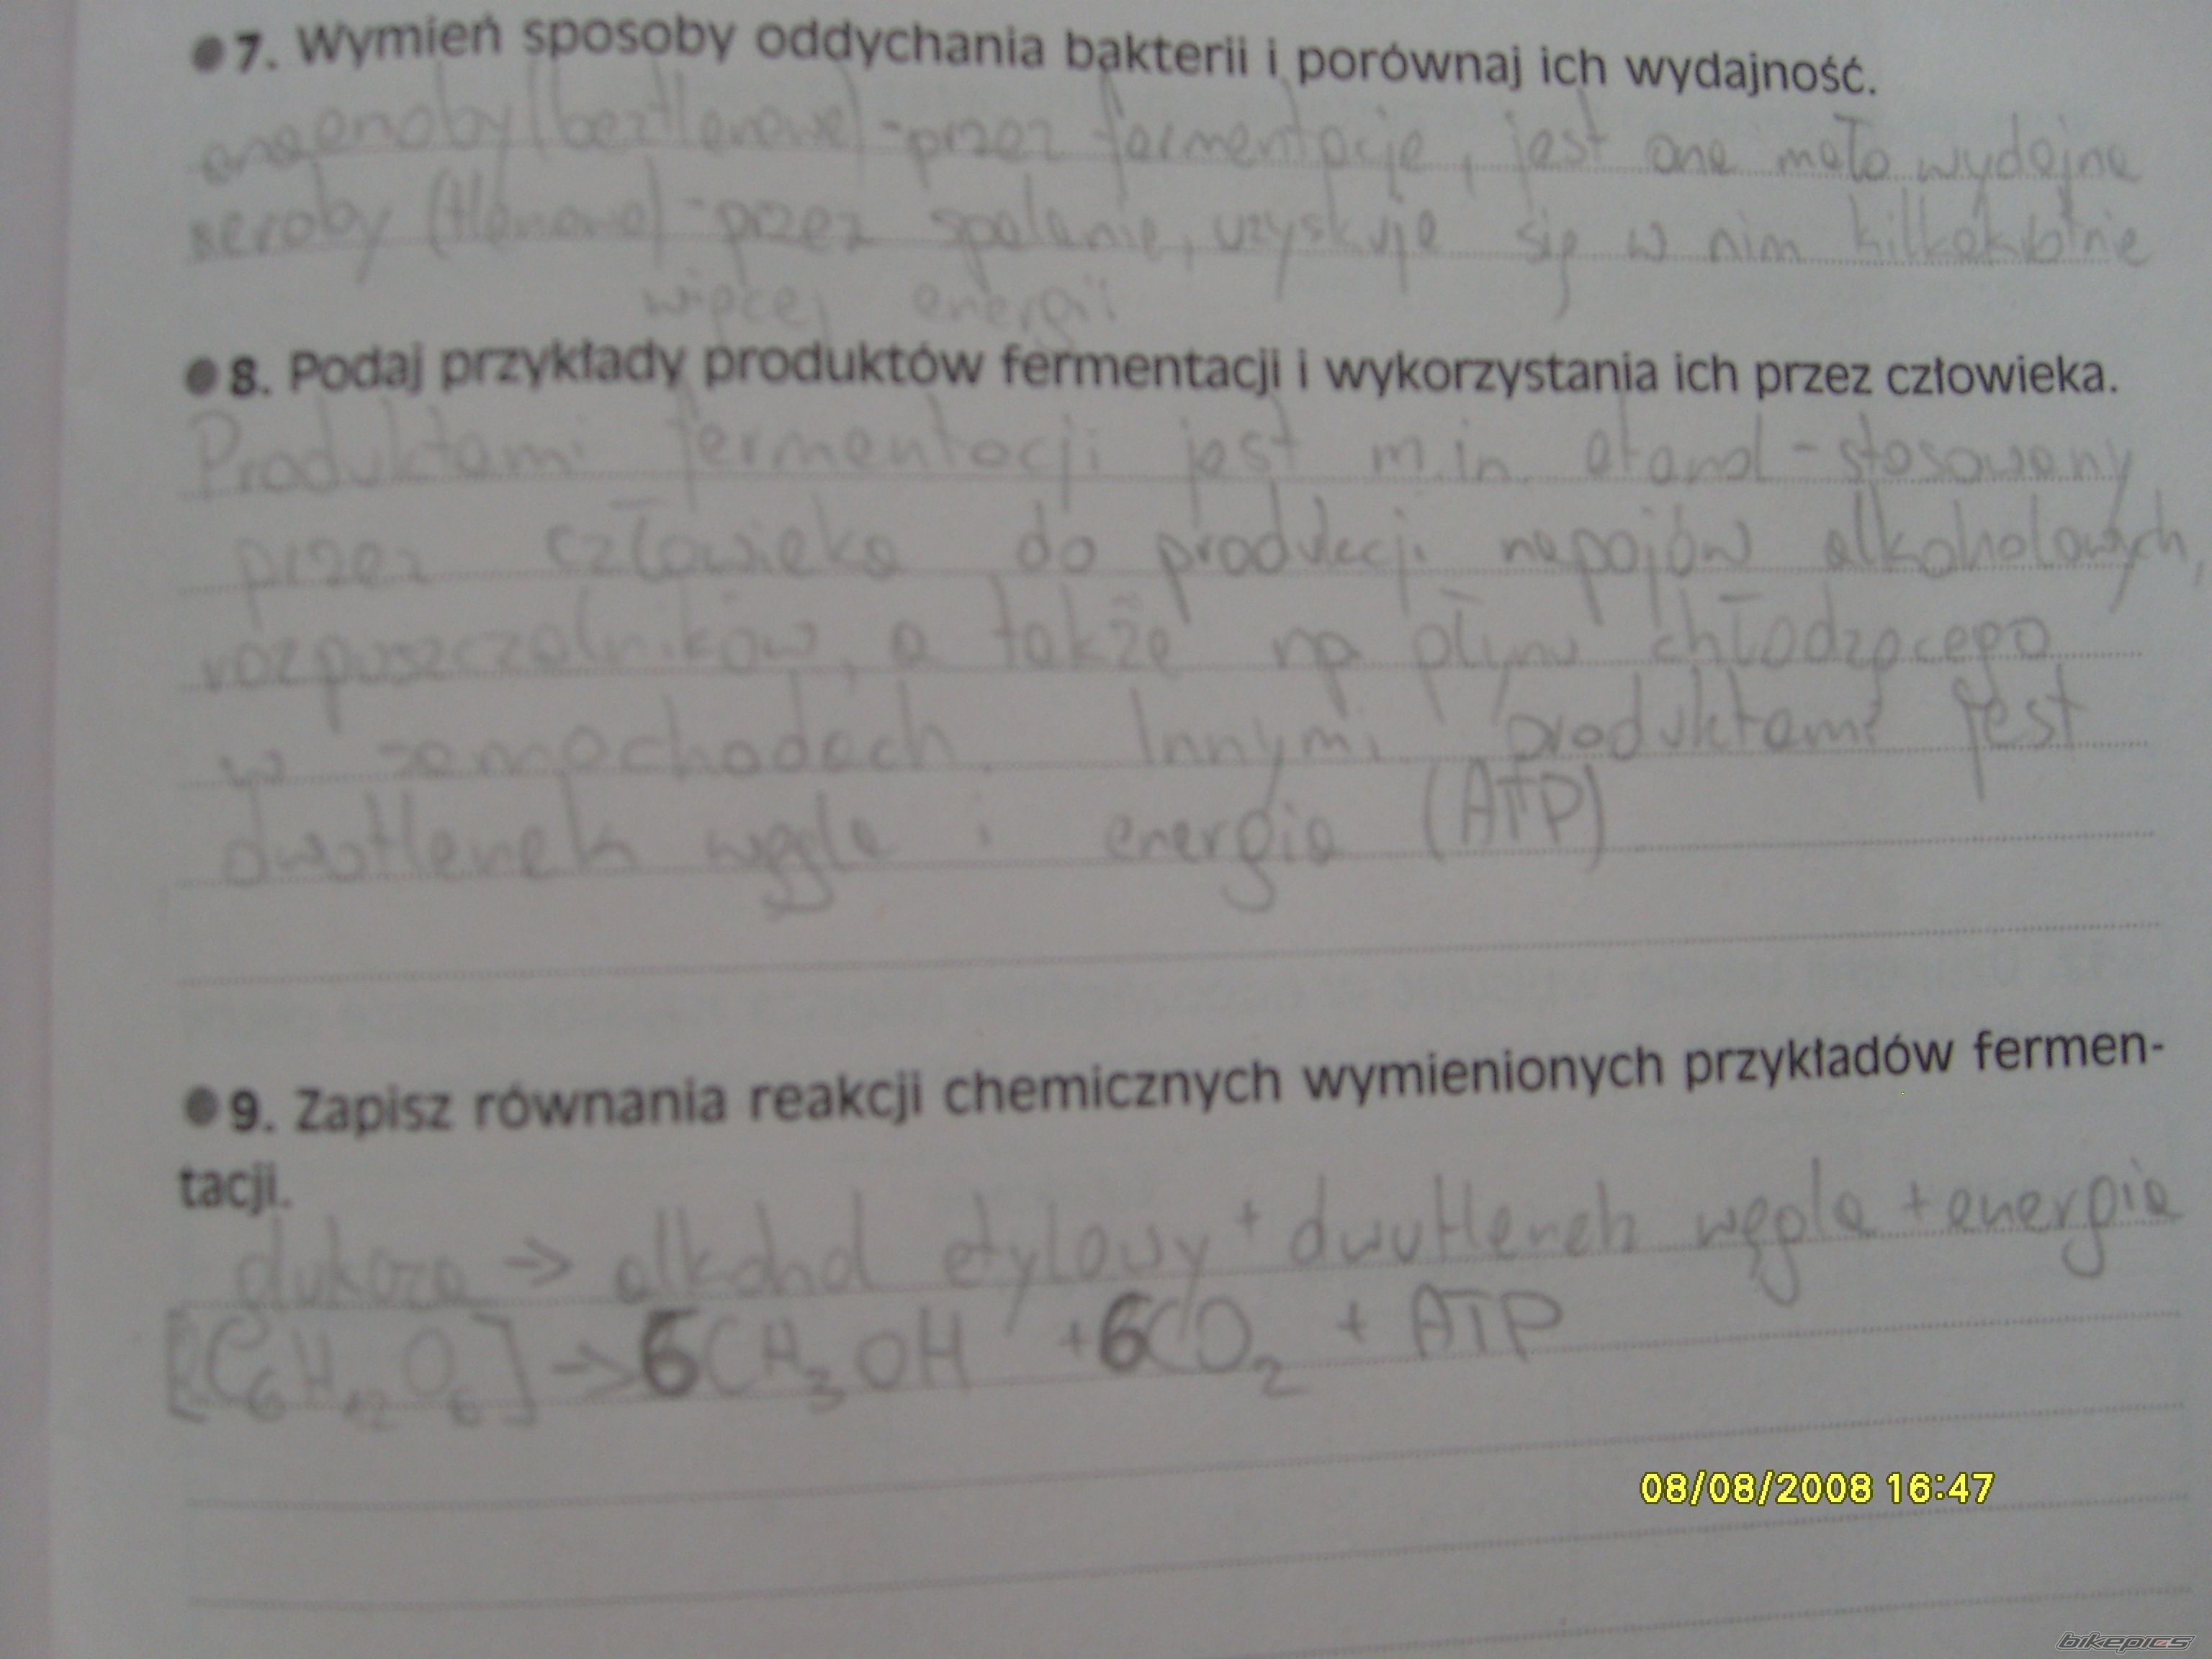 7. Wymień sposoby oddychania bakterii i porównaj ich wydajność.
anaenoby (beztlenowe) - przez fermentację, jest one mało wydajne
aeroby (tlenowe) - przez spalanie, uzyskuje się w nim kilkakrotnie
więcej energii
8. Podaj przykłady produktów fermentacji i wykorzystania ich przez człowieka.
Produktami fermentacji jest m.in. etanol - stosowany
przez człowieka do produkcji napojów alkoholowych,
rozpuszczalników, a także np płynu chłodzącego
w samochodach. Innymi produktami jest
dwutlenek węgla i energia (ATP)
9. Zapisz równania reakcji chemicznych wymienionych przykładów fermen-
tacji.
glukoza → alkohol etylowy + dwutlenek węgla + energia
[C6H12O6] → 6CH3OH + 6CO2 + ATP
08/08/2008 16:47
bikepics